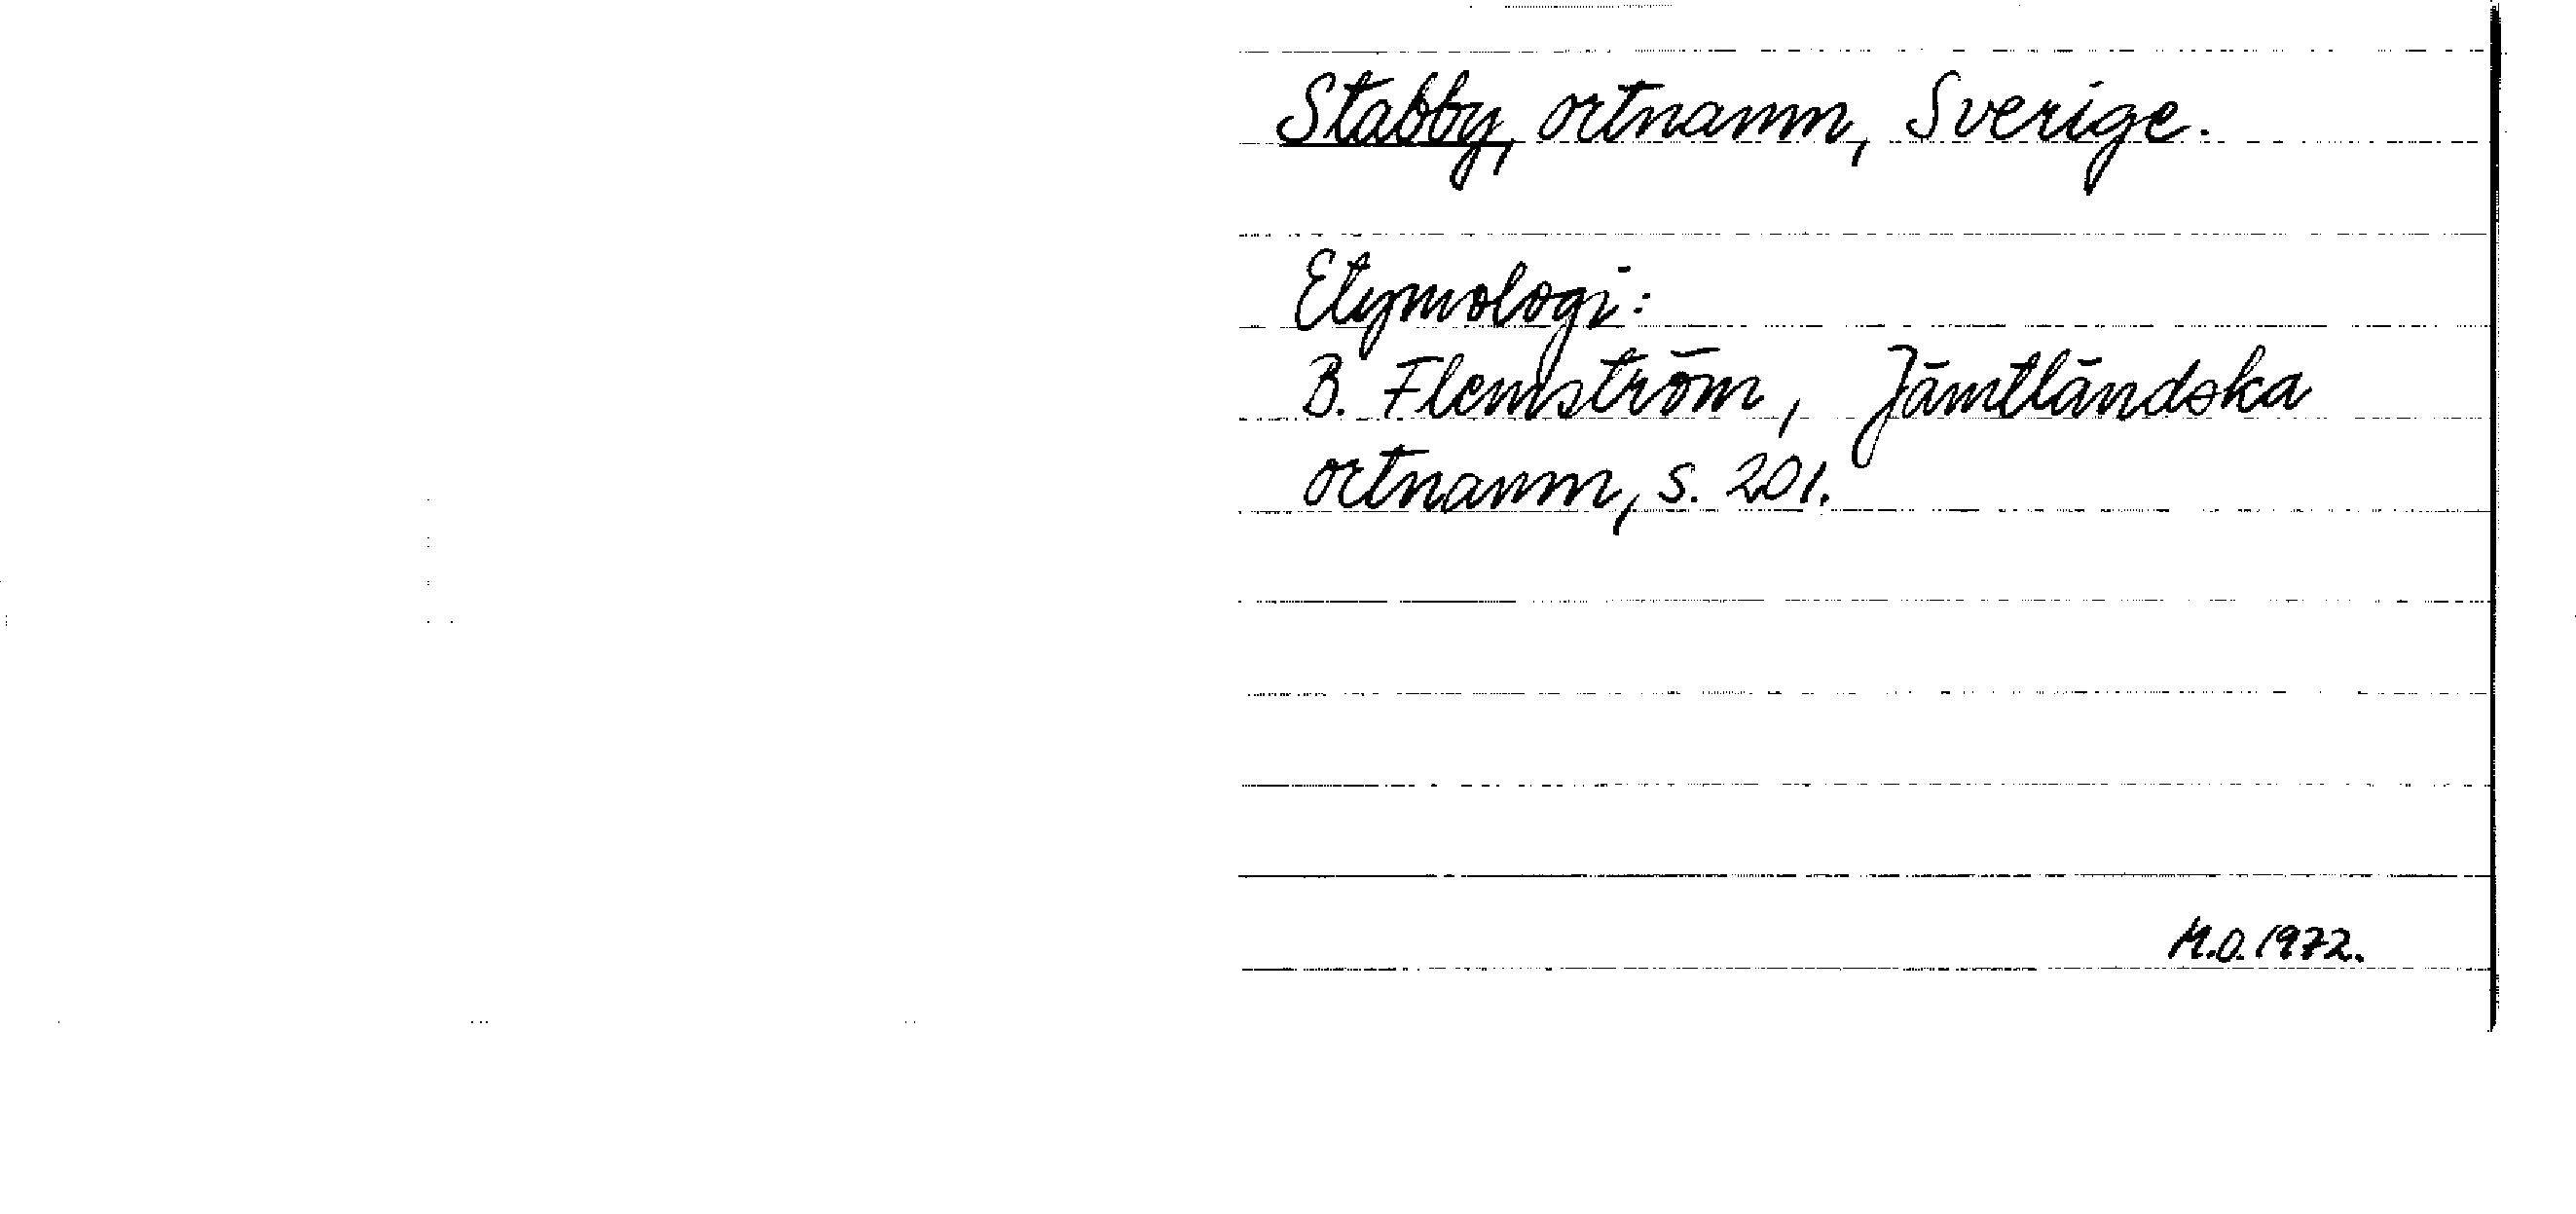 Stabby, ortnamn, Sverige.
Etymologi:
B. Flemström, Jämtländska
ortnamn, s. 201.
M.O. 1972.